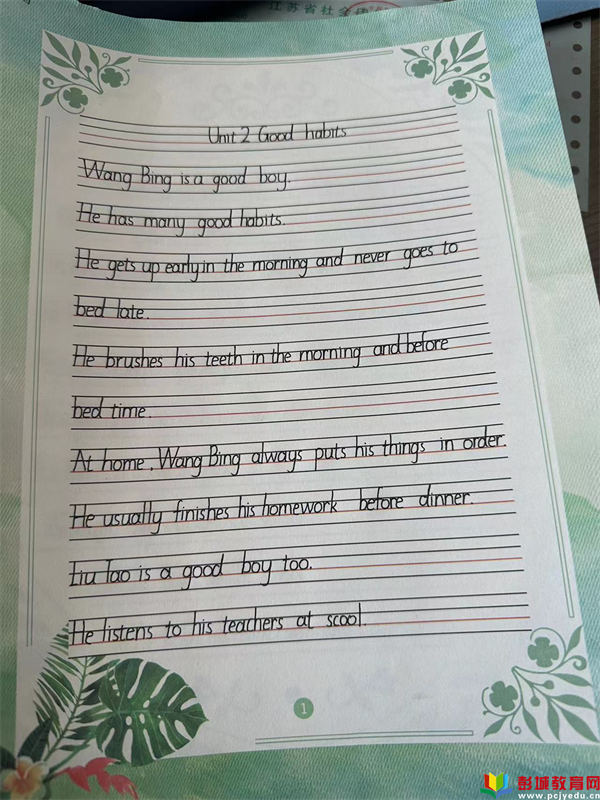 江苏省社会
Unit 2 Good habits
Wang Bing is a good boy.
He has many good habits.
He gets up early in the morning and never goes to
bed late.
He brushes his teeth in the morning and before
bed time.
At home, Wang Bing always puts his things in order.
He usually finishes his homework before dinner.
Liu Tao is a good boy too.
He listens to his teachers at scool.
1
彭城教育网
www.pcjyedu.cn